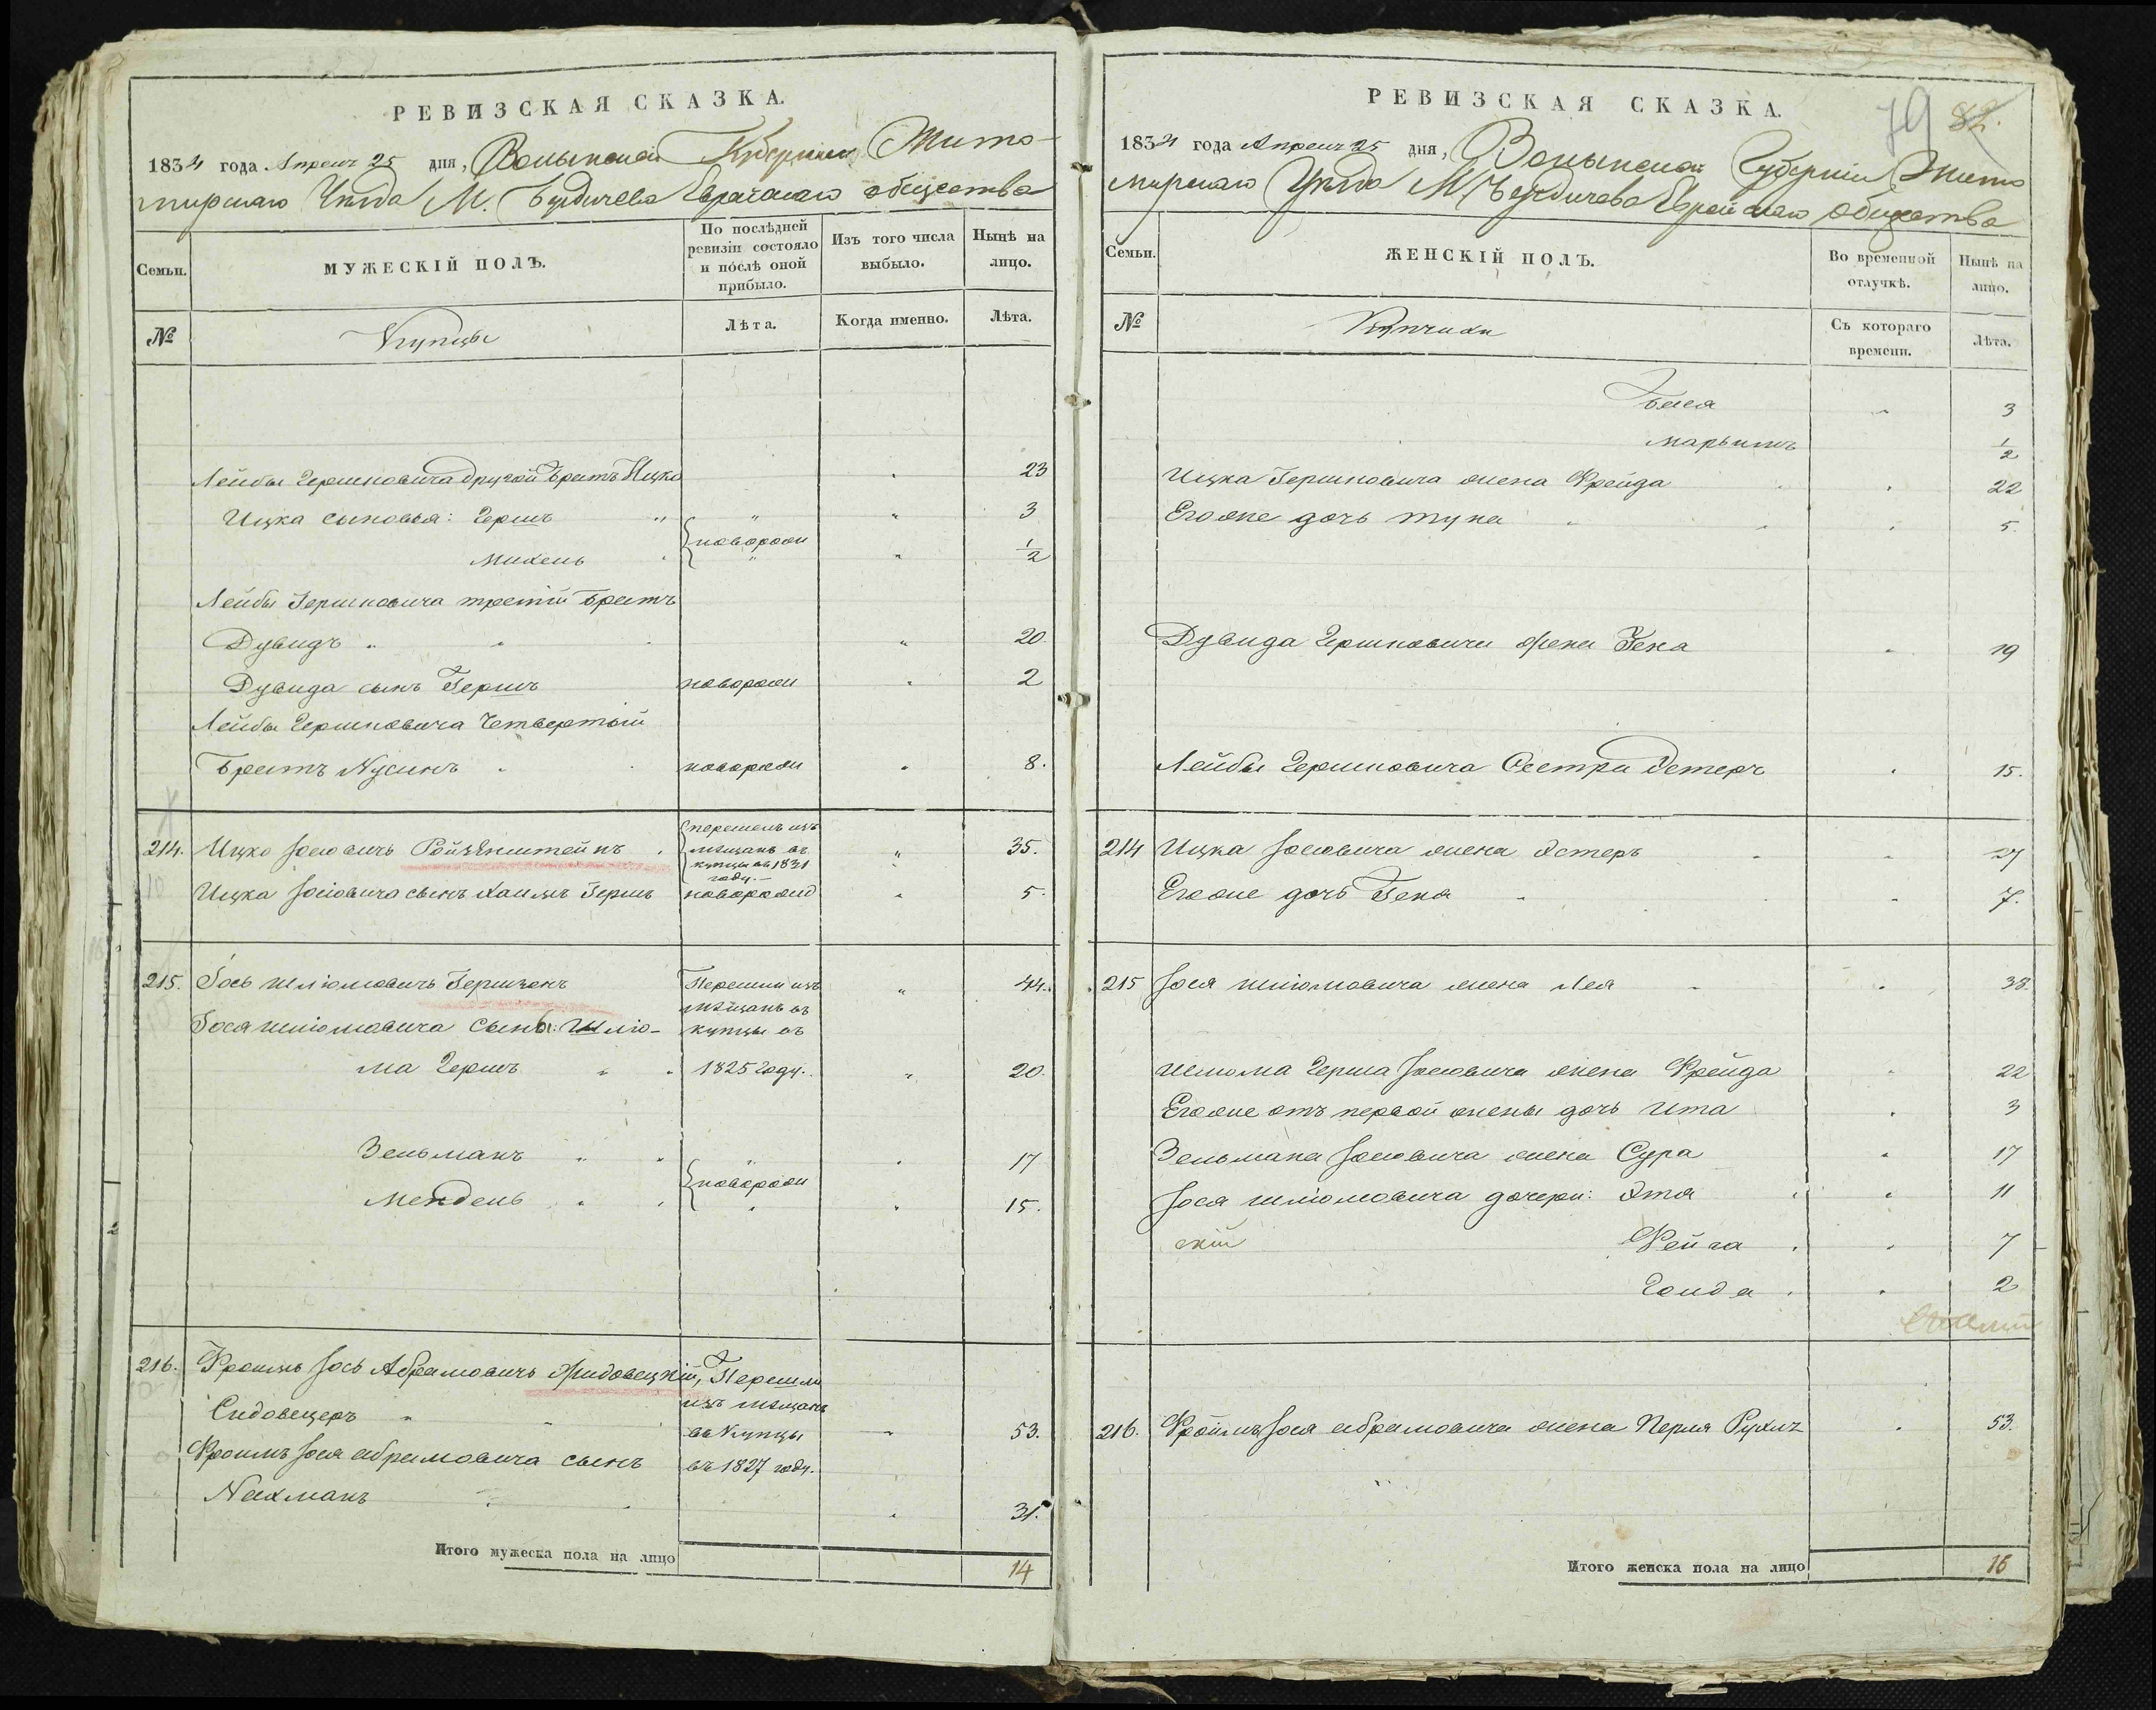 РЕВИЗСКАЯ СКАЗКА.
1834 года Апреля 25 дня, Волынской Губернии Жито-
мирскаго Уезда М. Бердичева Еврейскаго общества
Семьи.
МУЖЕСКІЙ ПОЛЪ.
По послѣдней ревизіи состояло и послѣ оной прибыло.
Изъ того числа выбыло.
Нынѣ на лицо.
№
Купцы
Лѣта.
Когда именно.
Лѣта.
Лейбы Гершковича другой братъ Ицко 23
Ицка сыновья: Гершъ " " " 3
новорож
Михель " " 1/2
Лейбы Гершковича третій братъ
Дувидъ " " 20.
Дувида сынъ Гершъ новорож " 2
Лейбы Гершковича Четвертый
братъ Нусинъ новорож " 8.
214. Ицко Іосіовичъ Ройзенштейнъ перешелъ изъ мѣщанъ въ купцы въ 1831 году.- " 35.
Ицка Іосіовича сынъ Хаимъ Гершъ новорожд " 5.
215. Іось Шліомовичъ Гершзонъ Перешли изъ " 44.
мѣщанъ въ
Іося Шліомовича сынъ: Шліо- купцы въ
ма Гершъ " 1825 году. " 20.
Зельманъ " " " 17
новорож
Мендель " " 15.
216. Фроимъ Іось Абрамовичъ Жидовецкій, Перешли
изъ мѣщанъ
Сидовецеръ " въ Купцы " 53.
Фроимъ Іося Абрамовича сынъ въ 1827 году.
Нахманъ " 31.
Итого мужеска пола на лицо 14
РЕВИЗСКАЯ СКАЗКА.
79 82.
1834 года Апреля 25 дня, Волынской Губерніи Жито
мирскаго Уезда М Бердичева Еврейскаго общества
Семьи.
ЖЕНСКІЙ ПОЛЪ.
Во временной отлучкѣ.
Нынѣ на лицо.
№
Купчихи
Съ котораго времени.
Лѣта.
Бейля " 3
Марьимъ 1/2
Ицка Гершковича жена Фрейда " 22
Его же дочь " 5.
Дувида Гершковича жена Гена " 19
Лейбы Гершковича Сестра Эстеръ " 15.
214 Ицка Іосіовича жена Эстеръ " 27
Его же дочь Гена " 7.
215 Іося Шліомовича жена Лея " 38.
Шліома Герша Іосіовича жена Фрейда " 22
Его же отъ первой жены дочь Ита " 3
Зельмана Іосіовича жена Сура " 17
Іося Шліомовича дочери: Этя " 11
скій
Фейга " 7
Голда " 2
216. Фроимъ Іося Абрамовича жена Перля Рухлъ " 53.
Итого женска пола на лицо 16